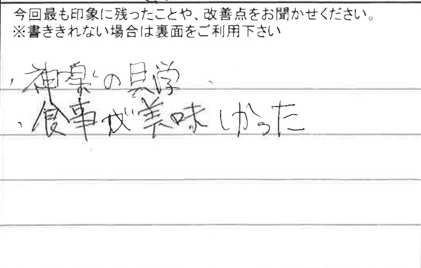 今回最も印象に残ったことや、改善点をお聞かせください。
※書ききれない場合は裏面をご利用下さい
・神楽の見学
・食事が美味しかった